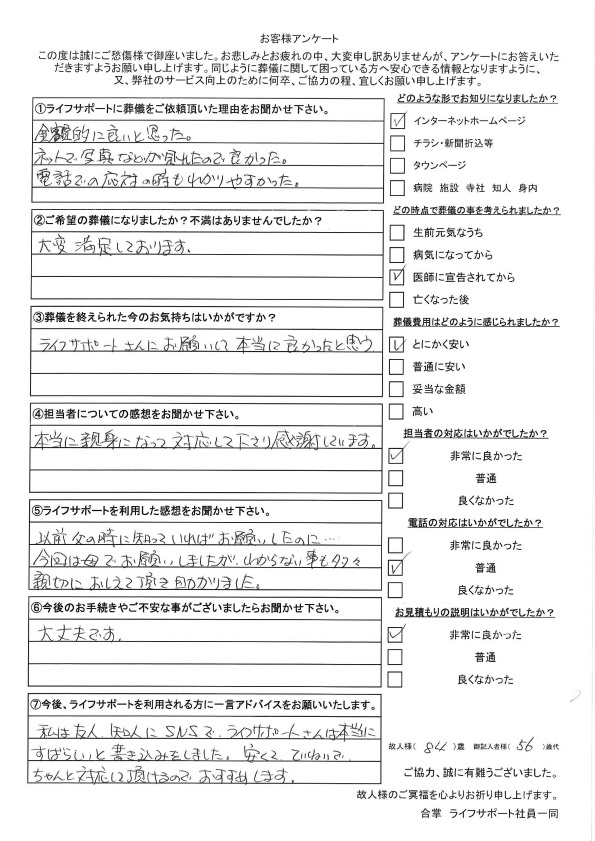 お客様アンケート
この度は誠にご愁傷様で御座いました。お悲しみとお疲れの中、大変申し訳ありませんが、アンケートにお答えいた
だきますようお願い申し上げます。同じように葬儀に関して困っている方へ安心できる情報となりますように、
又、弊社のサービス向上のために何卒、ご協力の程、宜しくお願い申し上げます。
①ライフサポートに葬儀をご依頼頂いた理由をお聞かせ下さい。
金額的に良いと思った。
ネットで写真などが見れたので良かった。
電話での応対の時もわかりやすかった。
②ご希望の葬儀になりましたか？不満はありませんでしたか？
大変満足しております。
③葬儀を終えられた今のお気持ちはいかがですか？
ライフサポートさんにお願いして本当に良かったと思う
④担当者についての感想をお聞かせ下さい。
本当に親身になって対応して下さり感謝しています。
⑤ライフサポートを利用した感想をお聞かせ下さい。
以前父の時に知っていればお願いしたのに…
今回は母でお願いしましたが、わからない事も多々
親切におしえて頂き助かりました。
⑥今後のお手続きやご不安な事がございましたらお聞かせ下さい。
大丈夫です。
⑦今後、ライフサポートを利用される方に一言アドバイスをお願いいたします。
私は友人、知人にSNSで、ライフサポートさんは本当に
すばらしいと書き込みをしました。安くて、ていねいで、
ちゃんと対応して頂けるのでおすすめします。
どのような形でお知りになりましたか？
インターネットホームページ
チラシ・新聞折込等
タウンページ
病院 施設 寺社 知人 身内
どの時点で葬儀の事を考えられましたか？
生前元気なうち
病気になってから
医師に宣告されてから
亡くなった後
葬儀費用はどのように感じられましたか？
とにかく安い
普通に安い
妥当な金額
高い
担当者の対応はいかがでしたか？
非常に良かった
普通
良くなかった
電話の対応はいかがでしたか？
非常に良かった
普通
良くなかった
お見積もりの説明はいかがでしたか？
非常に良かった
普通
良くなかった
故人様（ 84 ）歳 御記入者様（ 56 ）歳代
ご協力、誠に有難うございました。
故人様のご冥福を心よりお祈り申し上げます。
合掌 ライフサポート社員一同